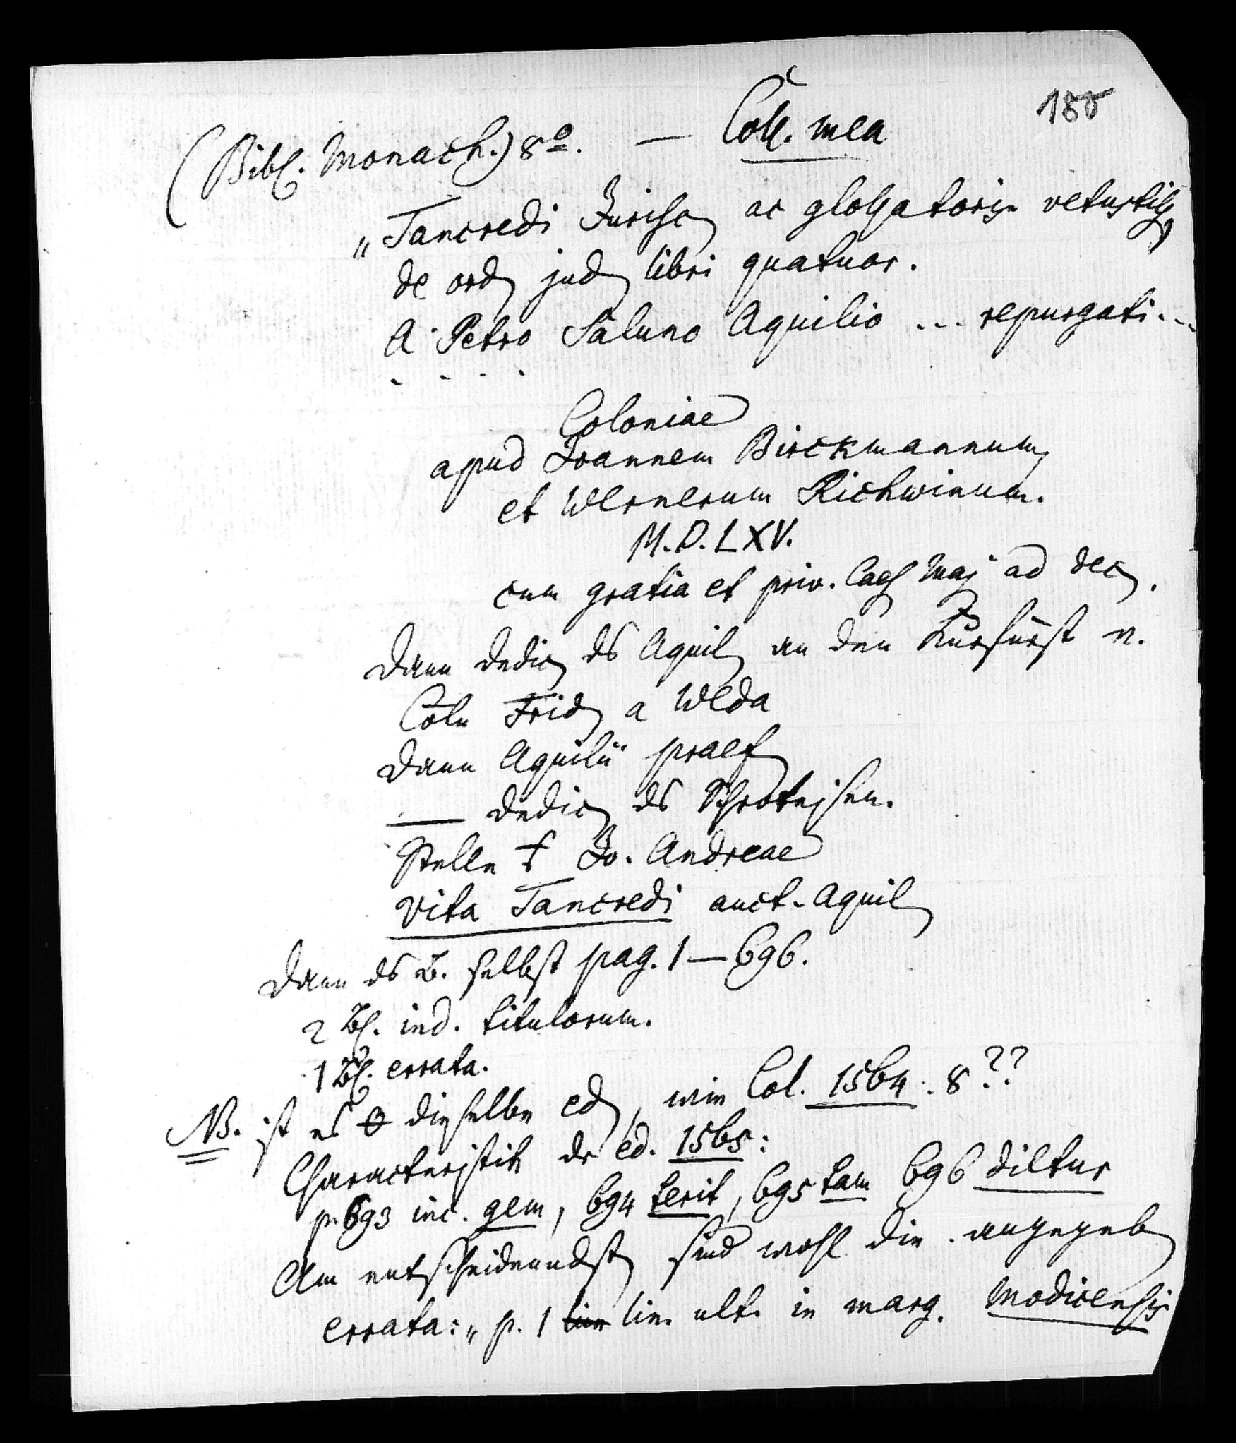 180
(Bibl. Monach.) 8o. — Coll. mea
„Tancredi Jurisc ac glossatoris vetustiss
de ord jud libri quatuor.
A Petro Saluno Aquilio ... repurgati...
. . . .
Coloniae
apud Joannem Birckmannum
et Wernerum Richwinum.
M.D.LXV.
cum gratia et priv. Caes Maj ad dec.
Dann dedic ds Aquil an den Kurfürst v.
Cöln Frid a Weda
Dann Aquilii praef
— dedic ds
Stelle f Jo. Andreae
Vita Tancredi auct. Aquil
Dann ds B. selbst pag. 1—696.
2 Bl. ind. titulorum.
1 Bl. errata.
NB. ist es dieselbe ed, wie Col. 1564. 8??
Characteristik dr ed. 1565:
p. 693 inc. gem, 694 terit, 695 tam 696 diltur
Am entscheidendst sind wohl die angegeb
errata: „p. 1 lin. ult. in marg. Modicensis